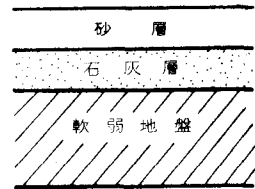 砂層
石灰層
軟弱地盤